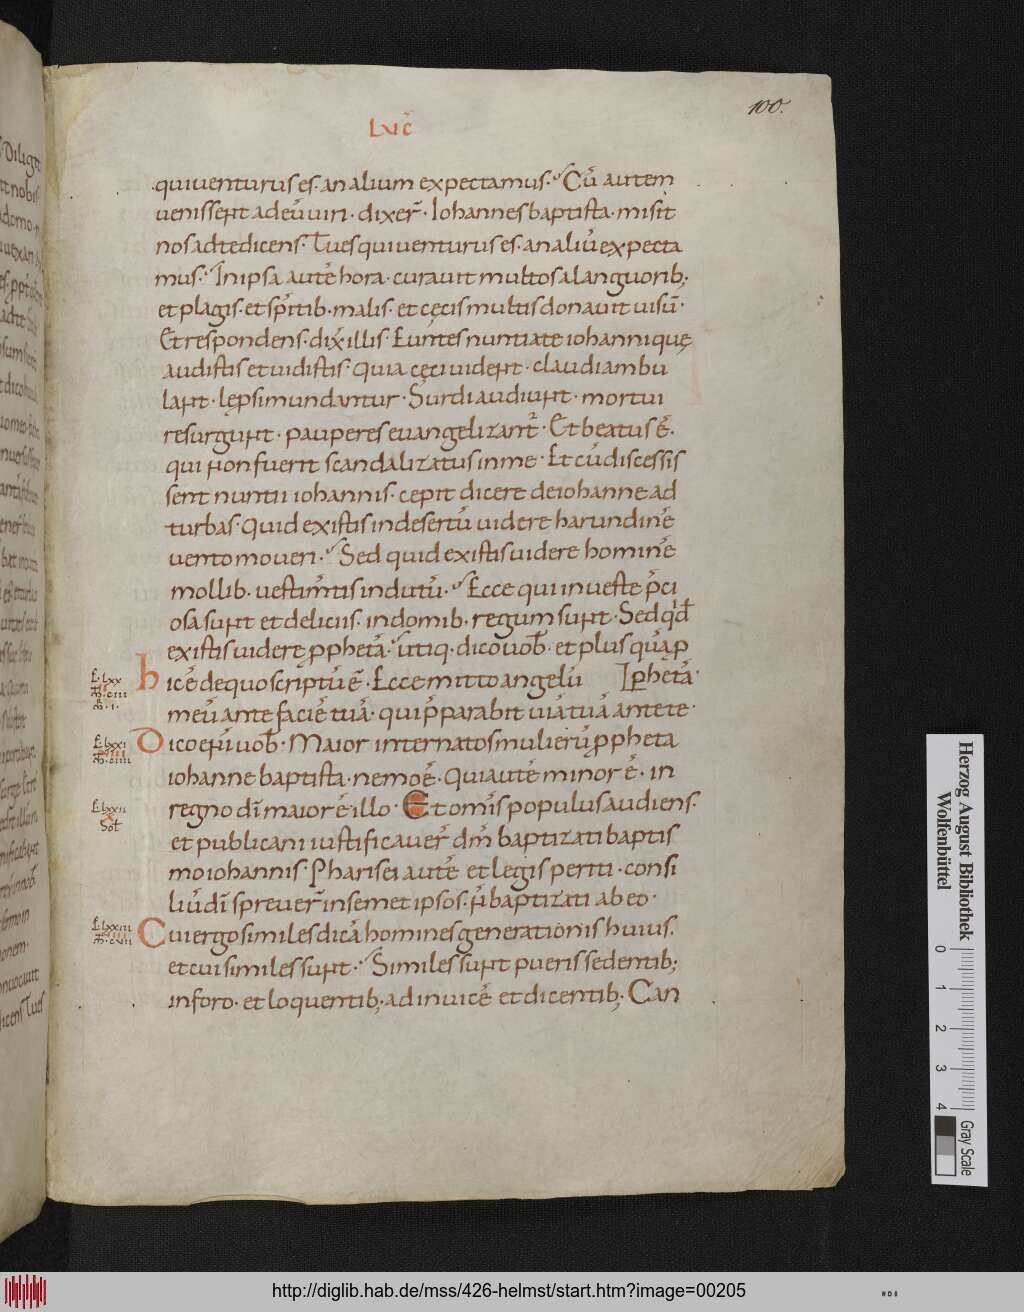 100.
LUC̄
qui uenturus es. an alium expectamus. Cū autem
uenissent ad eū uiri. dixer̄. Iohannes baptista. misit
nos ad te dicens. Tu es qui uenturus es. an aliū expecta
mus. In ipsa autē hora. curauit multos a languorib;
et plagis. et sp̄itib. malis. et cęcis multis donauit uisū.
Et respondens. dix̄ illis. Euntes nuntiate iohanni quę
audistis et uidistis. Quia cęci uident. claudi ambu
lant. lępsi mundantur. Surdi audiunt. mortui
resurgunt. pauperes euangelizant̄. Et beatus ē.
qui non fuerit scandalizatus in me. Et cū discessis
sent nuntii iohannis. cepit dicere de iohanne ad
turbas. Quid existis in desertū uidere harundinē
uento moueri. Sed quid existis uidere hominē
mollib. uestim̄tis indutū. Ecce qui in ueste p̄ci
osa sunt et deliciis. in domib. regum sunt. Sed qd̄
existis uidere p̱phetā. utiq. dico uob̄. et plus quā p̱
hic ē de quo scriptū ē. Ecce mitto angelū phetā.
meū ante faciē tuā. qui p̄parabit uiā tuā ante te.
Dico enī uob̄. Maior inter natos mulierū p̱pheta
iohanne baptista. nemo ē. Qui autē minor ē. in
regno dī maior ē illo. Et om̄is populus audiens.
et publicani iustificauer̄ dm̄ baptizati baptis
mo iohannis. Pharisei autē et legis periti. consi
liū dī spreuer̄ in semet ipsos. n̄ baptizati ab eo.
Cui ergo similes dicā homines generationis huius.
et cui similes sunt. Similes sunt pueris sedentib;
in foro. et loquentib; ad inuicē et dicentib; Can
L. lxx
M. ciii
L. lxxi
L. lxxii
Sol
L. lxxiii
M. cvii
Herzog August Bibliothek
Wolfenbüttel
0 1 2 3 4
Gray Scale
http://diglib.hab.de/mss/426-helmst/start.htm?image=00205